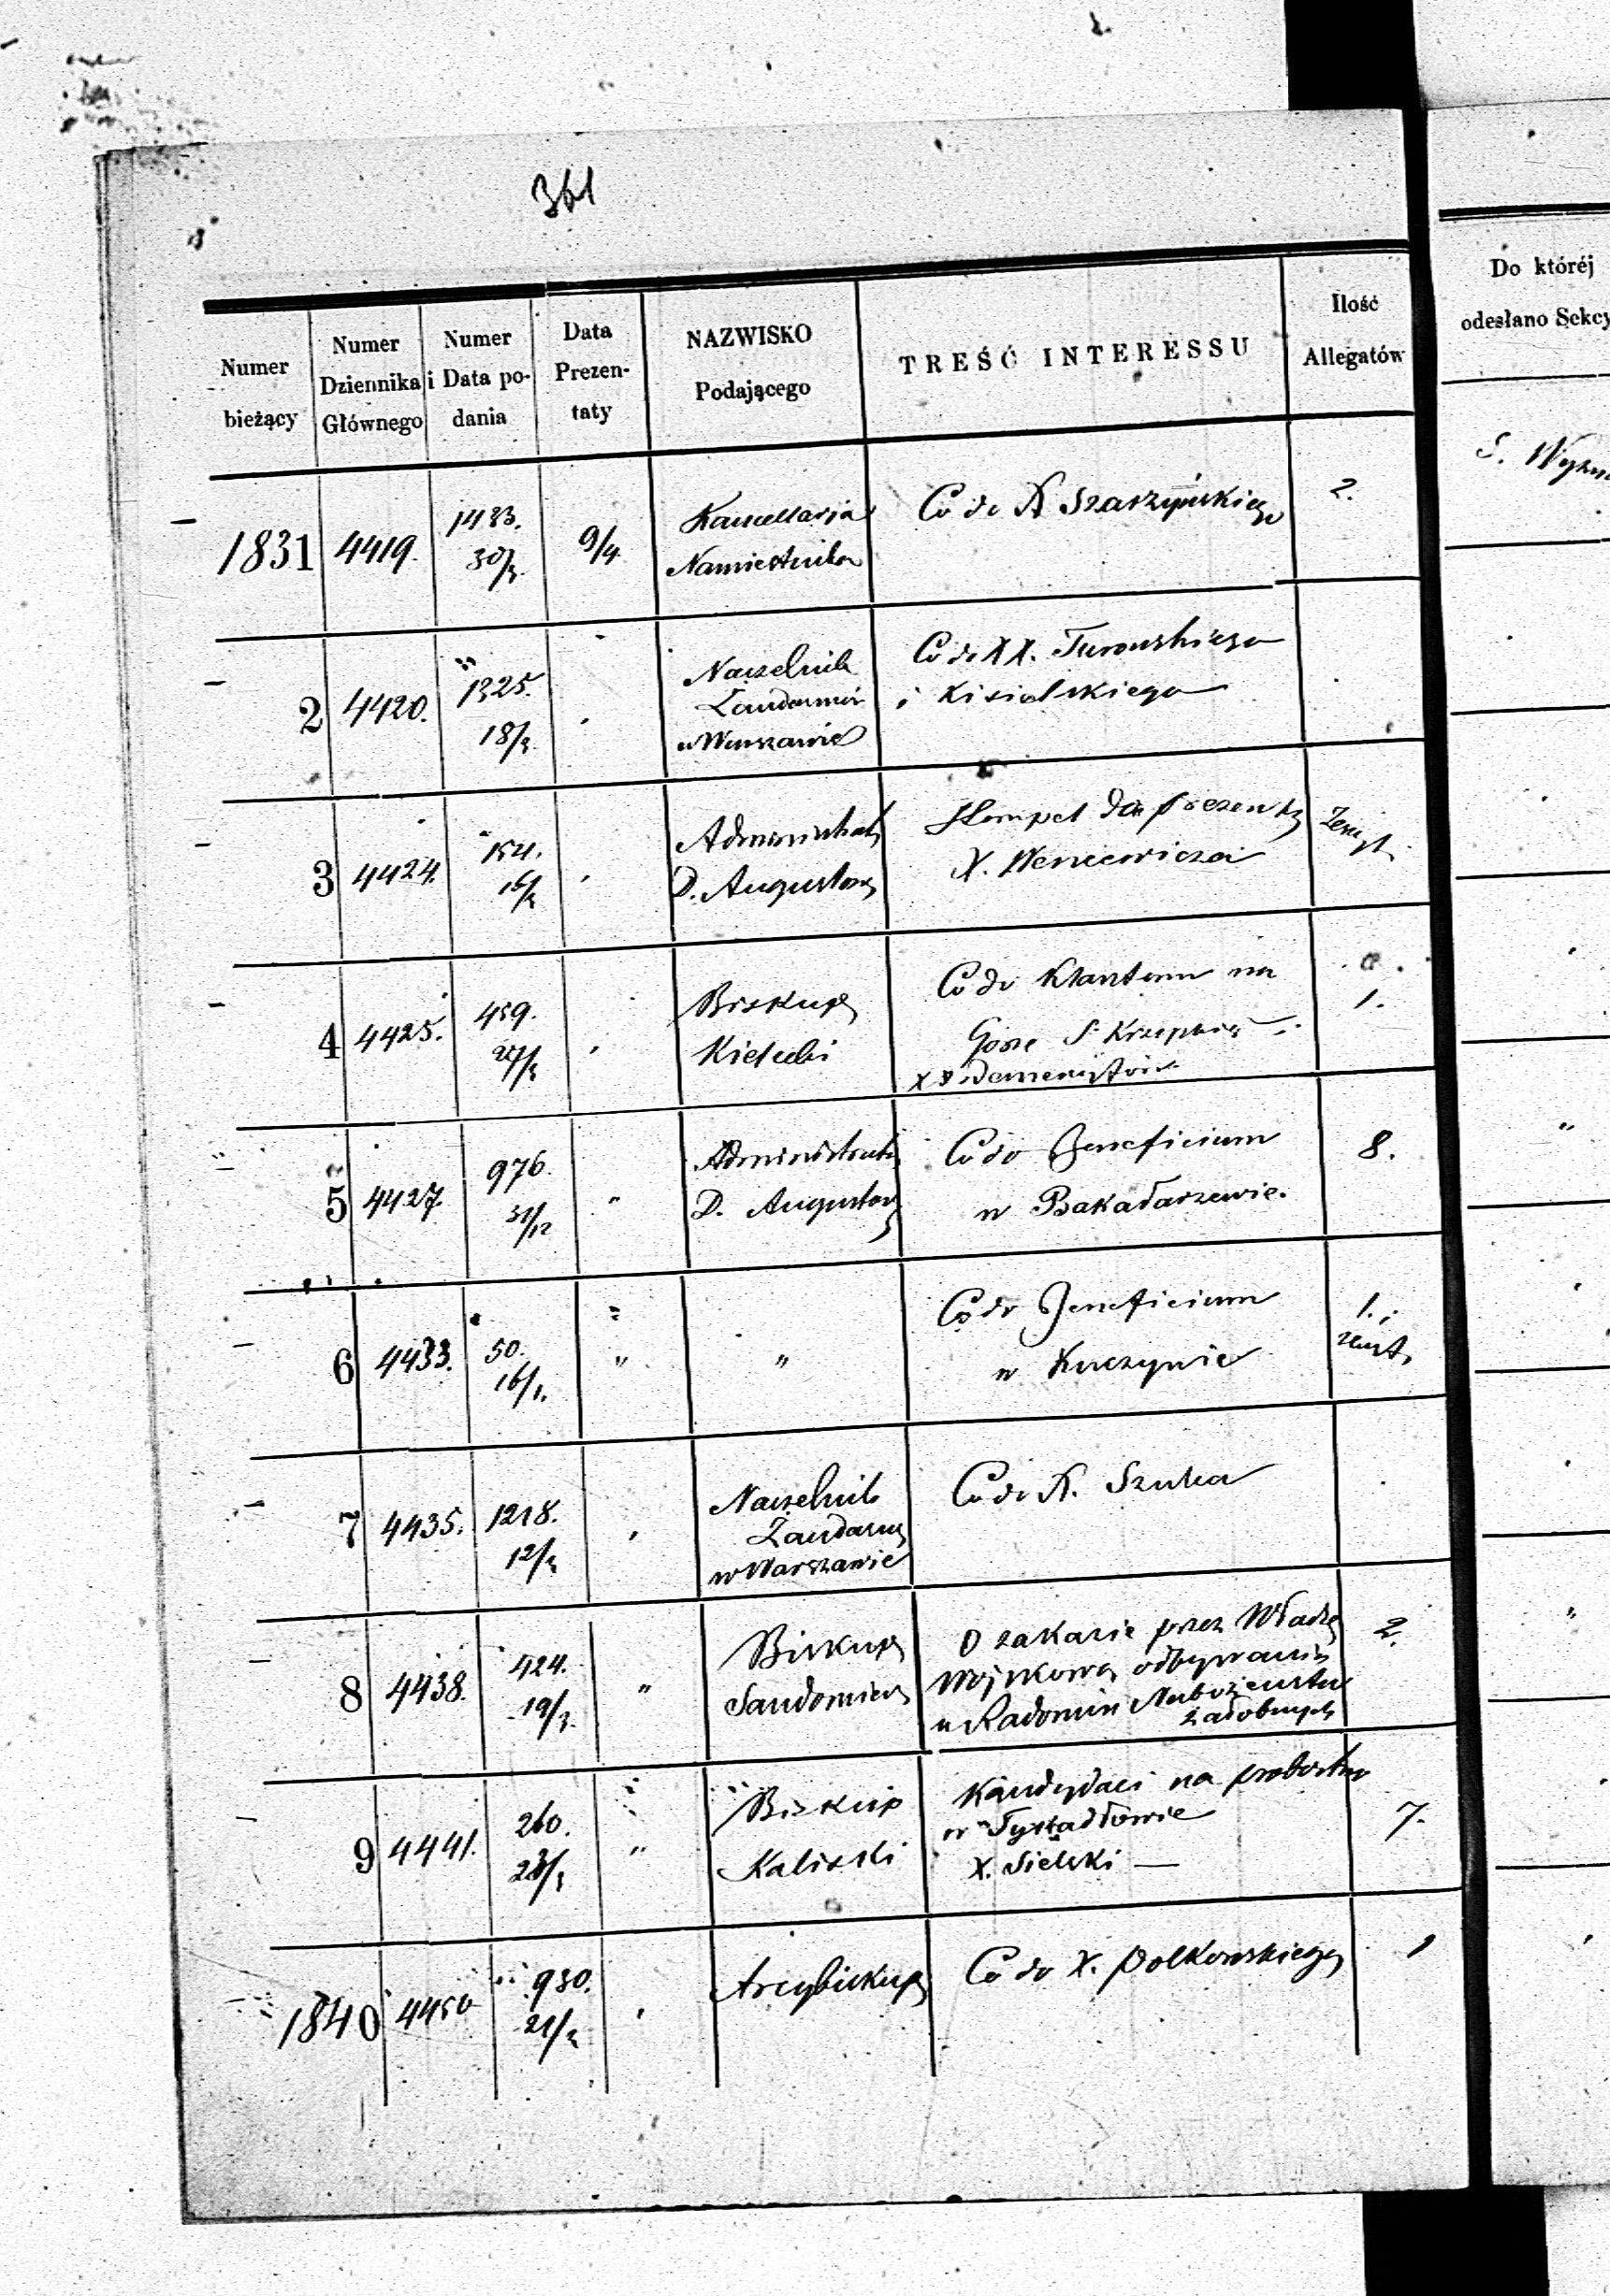 361
Numer
bieżący
Numer
Dziennika
Głównego
Numer
i Data po-
dania
Data
Prezen-
taty
NAZWISKO
Podającego
TREŚĆ INTERESSU
Ilość
Allegatów
Do któréj
odesłano Sekcy
1831 4419. 1483. 30/3. 9/4.
Kancellaria
Namiestnika
Co do X Szaszyńskiego
2.
S.
2 4420. 1325. 18/3.
Naczelnik
Żandarmów
w Warszawie
Co do XX. Turowskiego
i Kisielskiego
3 4424. 154. 16/3
Administrat
D. Augustow
Stempel do prezenty
X.
Zeszyt
4 4425. 459. 27/3
Biskup
Kielecki
Co do Klasztoru na
Górze S. Krzyskiej
XX Demerytów
1.
5 4427. 976. 31/12 "
Administrat
D. Augustow
Co do Beneficium
w Bakałarzewie.
8.
6 4433. 50. 16/1. " "
Co do Beneficium
w Kuczynie
1. i
zeszyt
7 4435. 1218. 12/3
Naczelnik
Żandarm
w Warszawie
Co do X. Szulca
8 4438. 424. 19/3. "
Biskup
Sandomiers
O zakazie przez Władzę
Wojskową odbywania
w Radomiu Nabożeństw
żałobnych
2.
9 4441. 260. 23/3 "
Biskup
Kaliski
Kandydaci na probostw
w Tykadłowie
X. Sielski —
7.
1840 4450 930. 21/3
Arcybiskup
Co do X. Polkowskiego
1